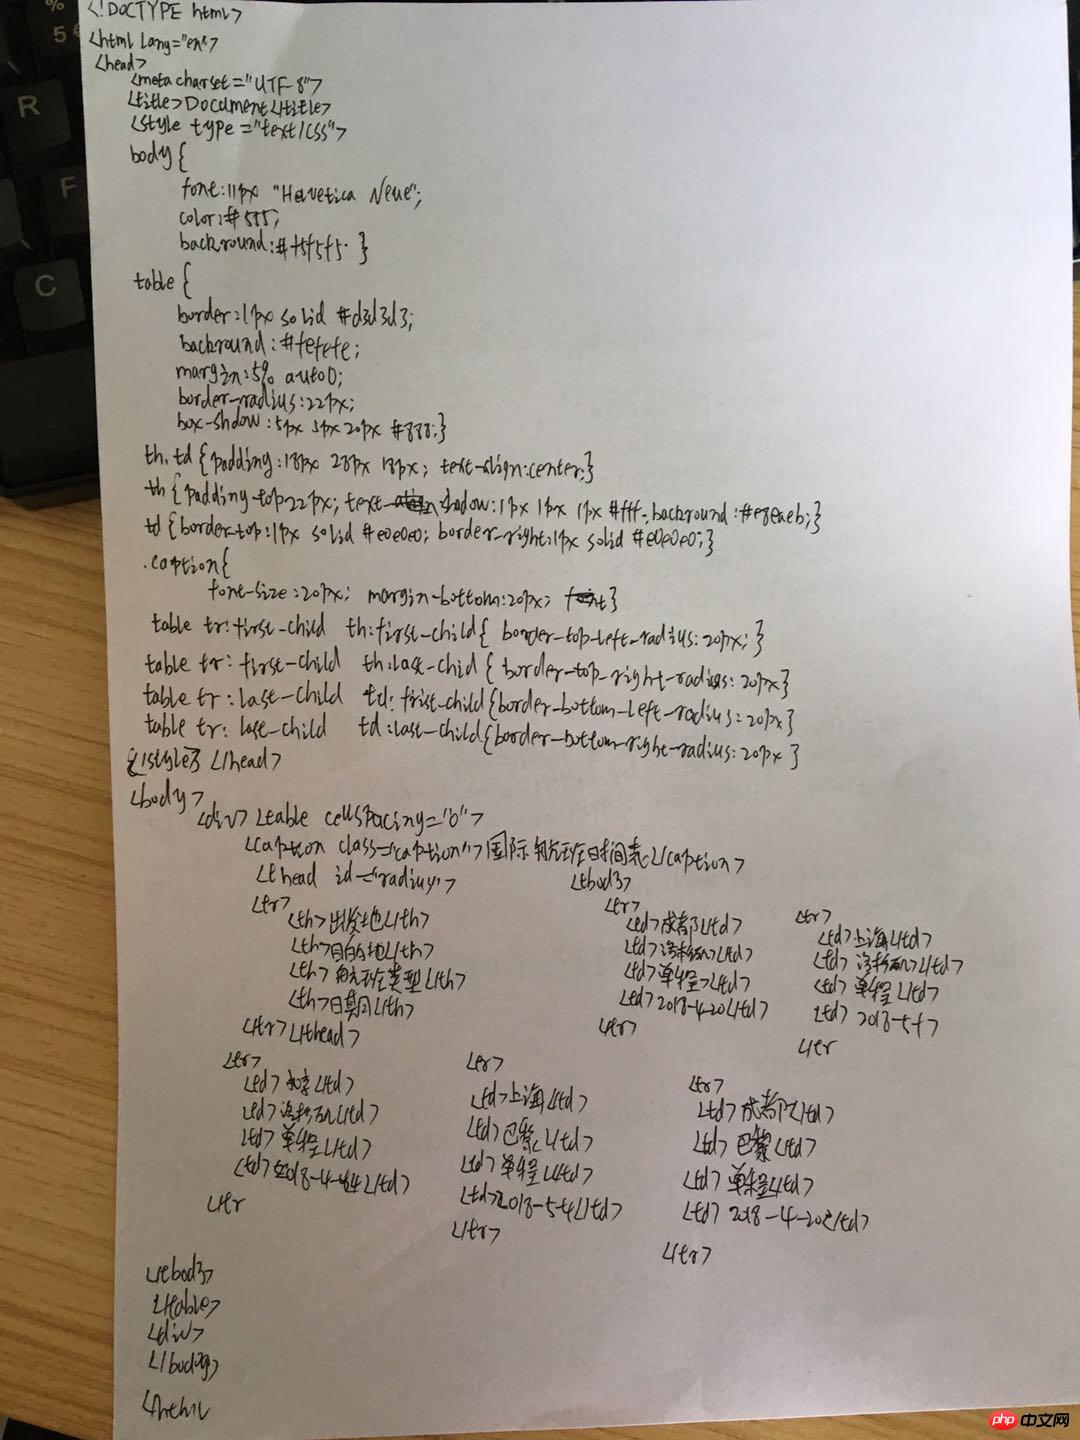 <!DOCTYPE html>
<html lang="en">
<head>
<meta charset="UTF-8">
<title>Document</title>
<style type="text/css">
body{
font:11px "Helvetica Neue";
color:#555;
background:#f5f5f5. }
table{
border:1px solid #d3d3d3;
background:#fefefe;
margin:5% auto0;
border-radius:22px;
box-shdow:5px 5px 20px #888;}
th,td{padding:18px 28px 18px; text-align:center;}
th{padding-top22px; text-shadow:1px 1px 1px #fff;background:#e8eaeb;}
td{border-top:1px solid #e0e0e0; border-right:1px solid #e0e0e0;}
.caption{
font-size:20px; margin-bottom:20px; }
table tr:first-child th:first-child{ border-top-left-radius:20px; }
table tr:first-child th:last-chid{ border-top-right-radius:20px}
table tr:last-child td:frist-child{border-bottom-left-radius:20px}
table tr:last-child td:last-child{border-bottom-right-radius:20px }
</style> </head>
<body>
<div><table cellspacing="0">
<caption class="caption">国际航班时间表</caption>
<thead id="radiuy">
<tr>
<th>出发地</th>
<th>目的地</th>
<th>航班类型</th>
<th>日期</th>
</tr></thead>
<tbody>
<tr>
<td>成都</td>
<td>洛杉矶</td>
<td>单程</td>
<td>2018-4-20</td>
</tr>
<tr>
<td>上海</td>
<td>洛杉矶</td>
<td>单程</td>
<td>2018-5-1>
</tr
<tr>
<td></td>
<td>洛杉矶</td>
<td>单程</td>
<td></td>
</tr
<tr>
<td>上海</td>
<td>巴黎</td>
<td>单程</td>
<td>2018-5-4</td>
</tr>
<tr>
<td>成都</td>
<td>巴黎</td>
<td>单程</td>
<td>2018-4-20</td>
</tr>
</tbody>
</table>
<div>
</body>
</html
php 中文网